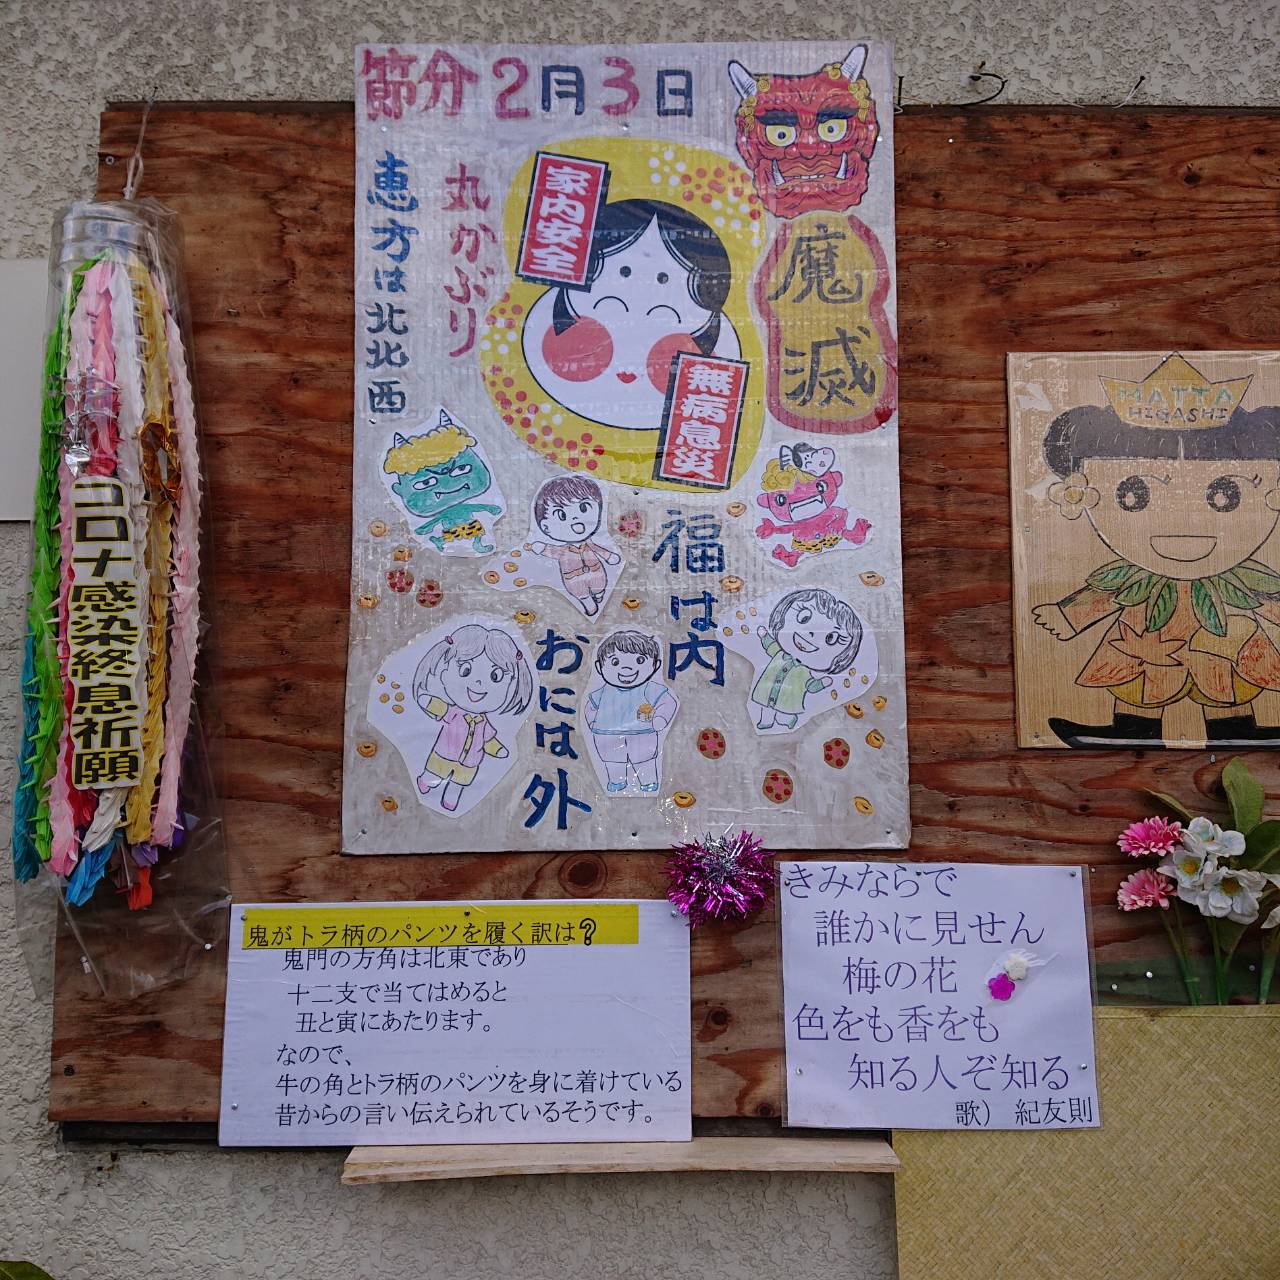 節分2月3日
恵方は北北西
丸かぶり
家内安全
無病息災
魔滅
福は内
おには外
コロナ感染終息祈願
MATTA
HIGASHI
鬼がトラ柄のパンツを履く訳は?
鬼門の方角は北東であり
十二支で当てはめると
丑と寅にあたります。
なので、
牛の角とトラ柄のパンツを身に着けている
昔からの言い伝えられているそうです。
きみならで
誰かに見せん
梅の花
色をも香をも
知る人ぞ知る
歌） 紀友則